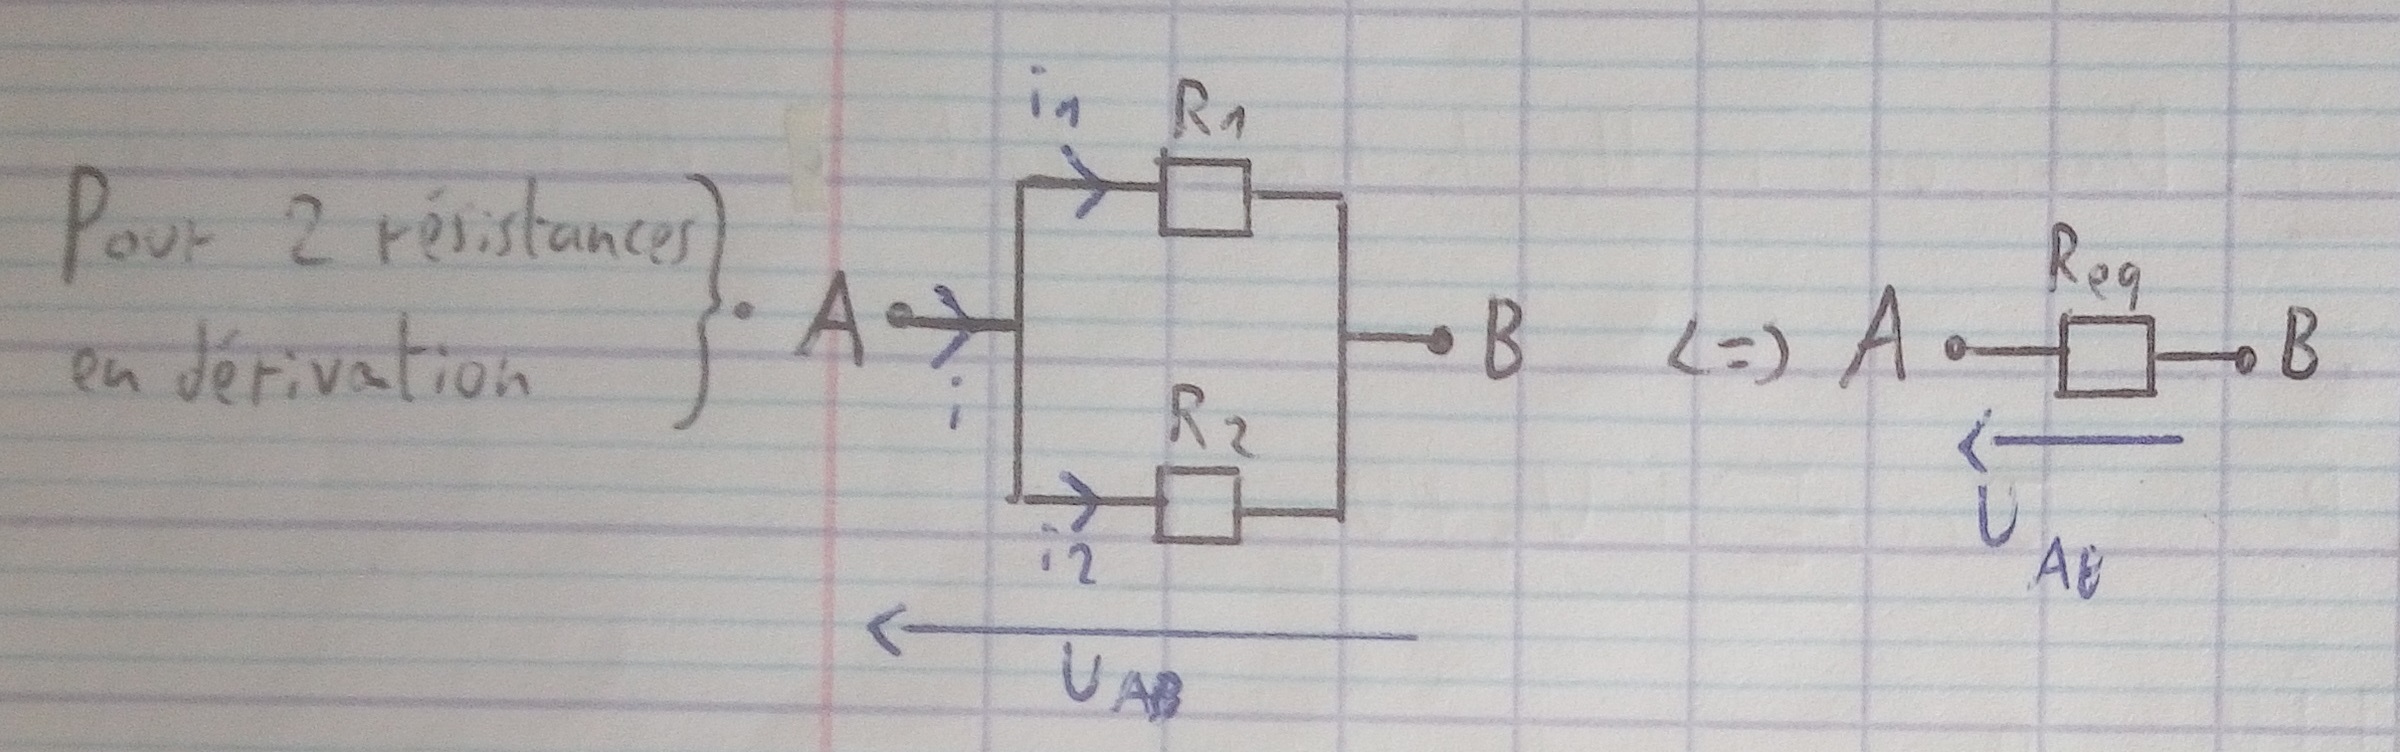 Pour 2 résistances
en dérivation
i1
R1
A
i
B
R2
i2
UAB
<=>
A
Req
B
UAB